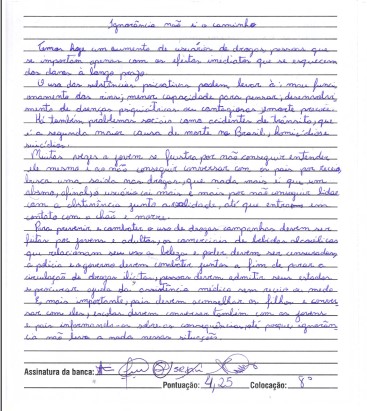 Ignorância não é o caminho
Temos hoje um aumento de usuários de drogas, pessoas que
se importam apenas com os efeitos imediatos que se esquecem
dos danos à longo prazo.
O uso das substâncias psicoativas podem levar à: mau funci
onamento dos rins; menor capacidade para pensar; desenvolvi
mento de doenças psiquiátricas ou contagiosas; morte precoce.
Há também problemas sociais como acidentes de trânsito, que
é a segunda maior causa de morte no Brasil, homicídios e
suicídios.
Muitas vezes o jovem se frustra por não conseguir entender
ele mesmo e ao não conseguir conversar com os pais por receio,
busca uma saída nas drogas, que nada mais é que um
abismo, afinal o usuário cai mais e mais por não conseguir lidar
com a abstinência junto a realidade, até que entra em
contato com o chão e morre.
Para prevenir e combater o uso de drogas campanhas devem ser
feitas por jovens e adultos, os comerciais de bebidas alcoólicas
que relacionam seu uso a beleza e poder devem ser censurados,
a polícia e governo devem combater juntos a fim de parar a
circulação de drogas ilícitas, pessoas devem admitir seus estados
e procurar ajuda da assistência médica sem receio ou medo.
E, mais importante, pais devem aconselhar os filhos e conver
sar com eles, escolas devem conversar também com os jovens
e pais informando-os sobre as consequências, até porque ignorân
cia não leva a nada nessas situações.
Assinatura da banca:
Pontuação: 4,25 Colocação: 8º